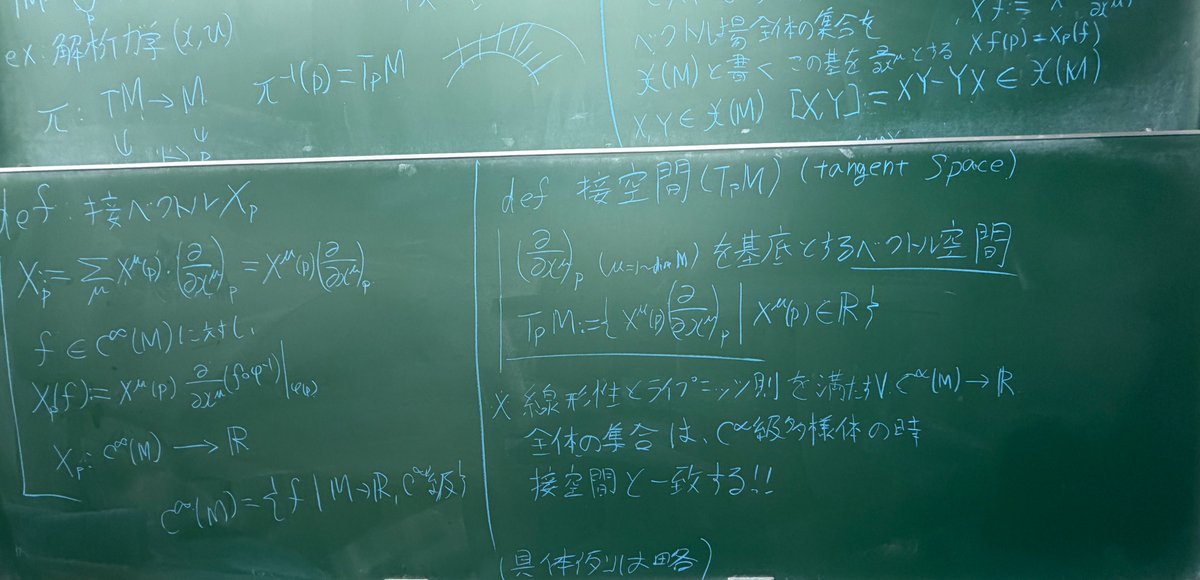 ex. 解析力学 (x, u)
π: TM → M
π⁻¹(p) = TpM
ベクトル場全体の集合を
𝔛(M) と書く この基を ∂/∂x^μ とする Xf(p) = Xp(f)
X, Y ∈ 𝔛(M) [X, Y] := XY - YX ∈ 𝔛(M)
def. 接ベクトル Xp
Xp := Σ_μ X^μ(p)・(∂/∂x^μ)_p = X^μ(p)(∂/∂x^μ)_p
f ∈ C^∞(M) に対し、
Xp(f) := X^μ(p) ∂/∂x^μ (f∘φ⁻¹)|_φ(p)
Xp: C^∞(M) → ℝ
C^∞(M) = {f | M → ℝ, C^∞級}
def 接空間 (TpM) (tangent space)
(∂/∂x^μ)_p (μ=1~dim M) を基底とするベクトル空間
TpM := { X^μ(p)(∂/∂x^μ)_p | X^μ(p) ∈ ℝ }
※ 線形性とライプニッツ則を満たす V: C^∞(M) → ℝ
全体の集合は、C^∞級多様体の時
接空間と一致する!!
(具体例は略)